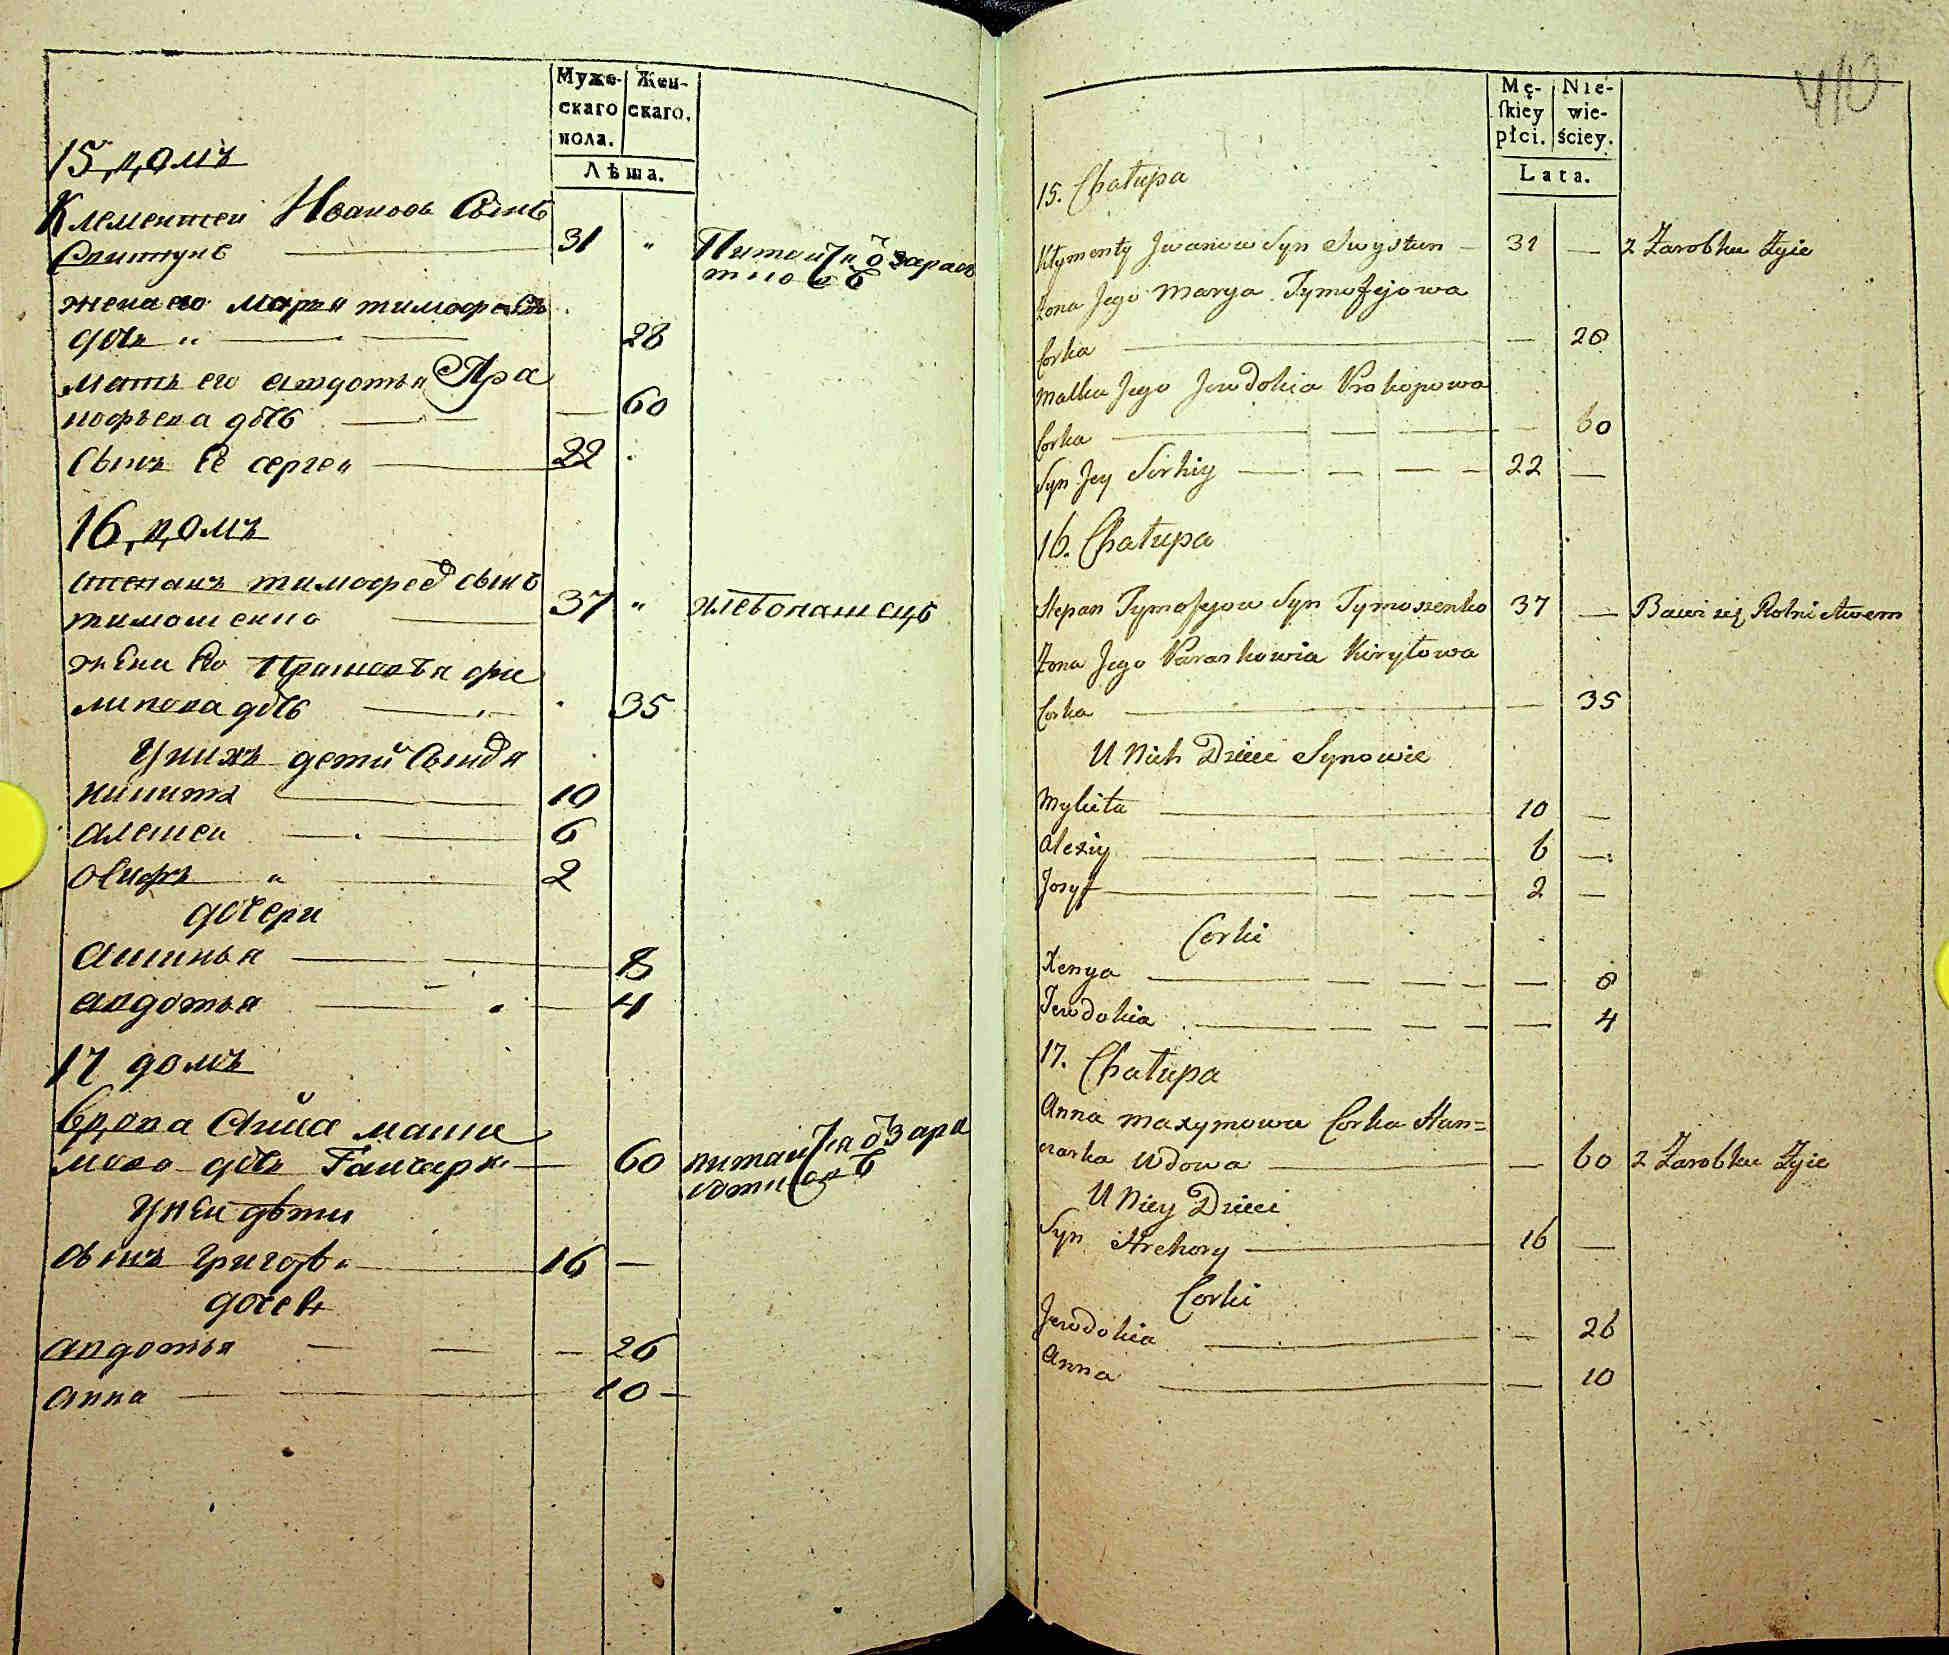 Муже-
скаго
пола.
Жен-
скаго.
Лѣта.
15 домъ
Клементей Ивановъ Сынъ
Свистунъ 31 "
Питаитца ѿ зарабо
тковъ
жена его Марья тимофеева
дочь " 28
мать его авдотья Пра
кофьева дочь 60
Сынъ Ее сергей 22
16 домъ
степанъ тимофеев сынъ
тимошенко 37 " хлебопашецъ
жена Ево Прасковья фи
липова дочь 35
У нихъ дети Сыновя
никита 10
алексей 6
осифъ " 2
дочери
аксинья 8
авдотья 4
17 домъ
вдова Анна макси
мова дочь Ганчарка 60
питаитца ѿ зара
ботковъ
У неи дети
сынъ григорей 16
дочери
авдотья 26
анна 10
410
Mę-
skiey
płci.
Nie-
wie-
ściey.
Lata.
15. Chałupa
Kłymenty Jwanow Syn Swystun 31 — z Zarobku Żyie
Żona Jego Marya Tymofejowa
Corka — 28
Matka Jego Jewdokia Prokopowa
Corka — 60
Syn Jey Serhiy 22 —
16. Chałupa
Stepan Tymofejow Syn Tymoszenko 37 — Bawi się Rolnictwem
Żona Jego Paraskowia Kiryłowa
Corka — 35
U Nich Dzieci Synowie
Mykita 10 —
Alexiy 6 —
Josyf 2 —
Corki
Xenya — 8
Jewdokia — 4
17. Chałupa
Anna Maxymowa Corka Han=
czarka Wdowa — 60 z Zarobku Żyie
U Niey Dzieci
Syn Hrehory 16 —
Corki
Jewdokia — 26
Anna — 10